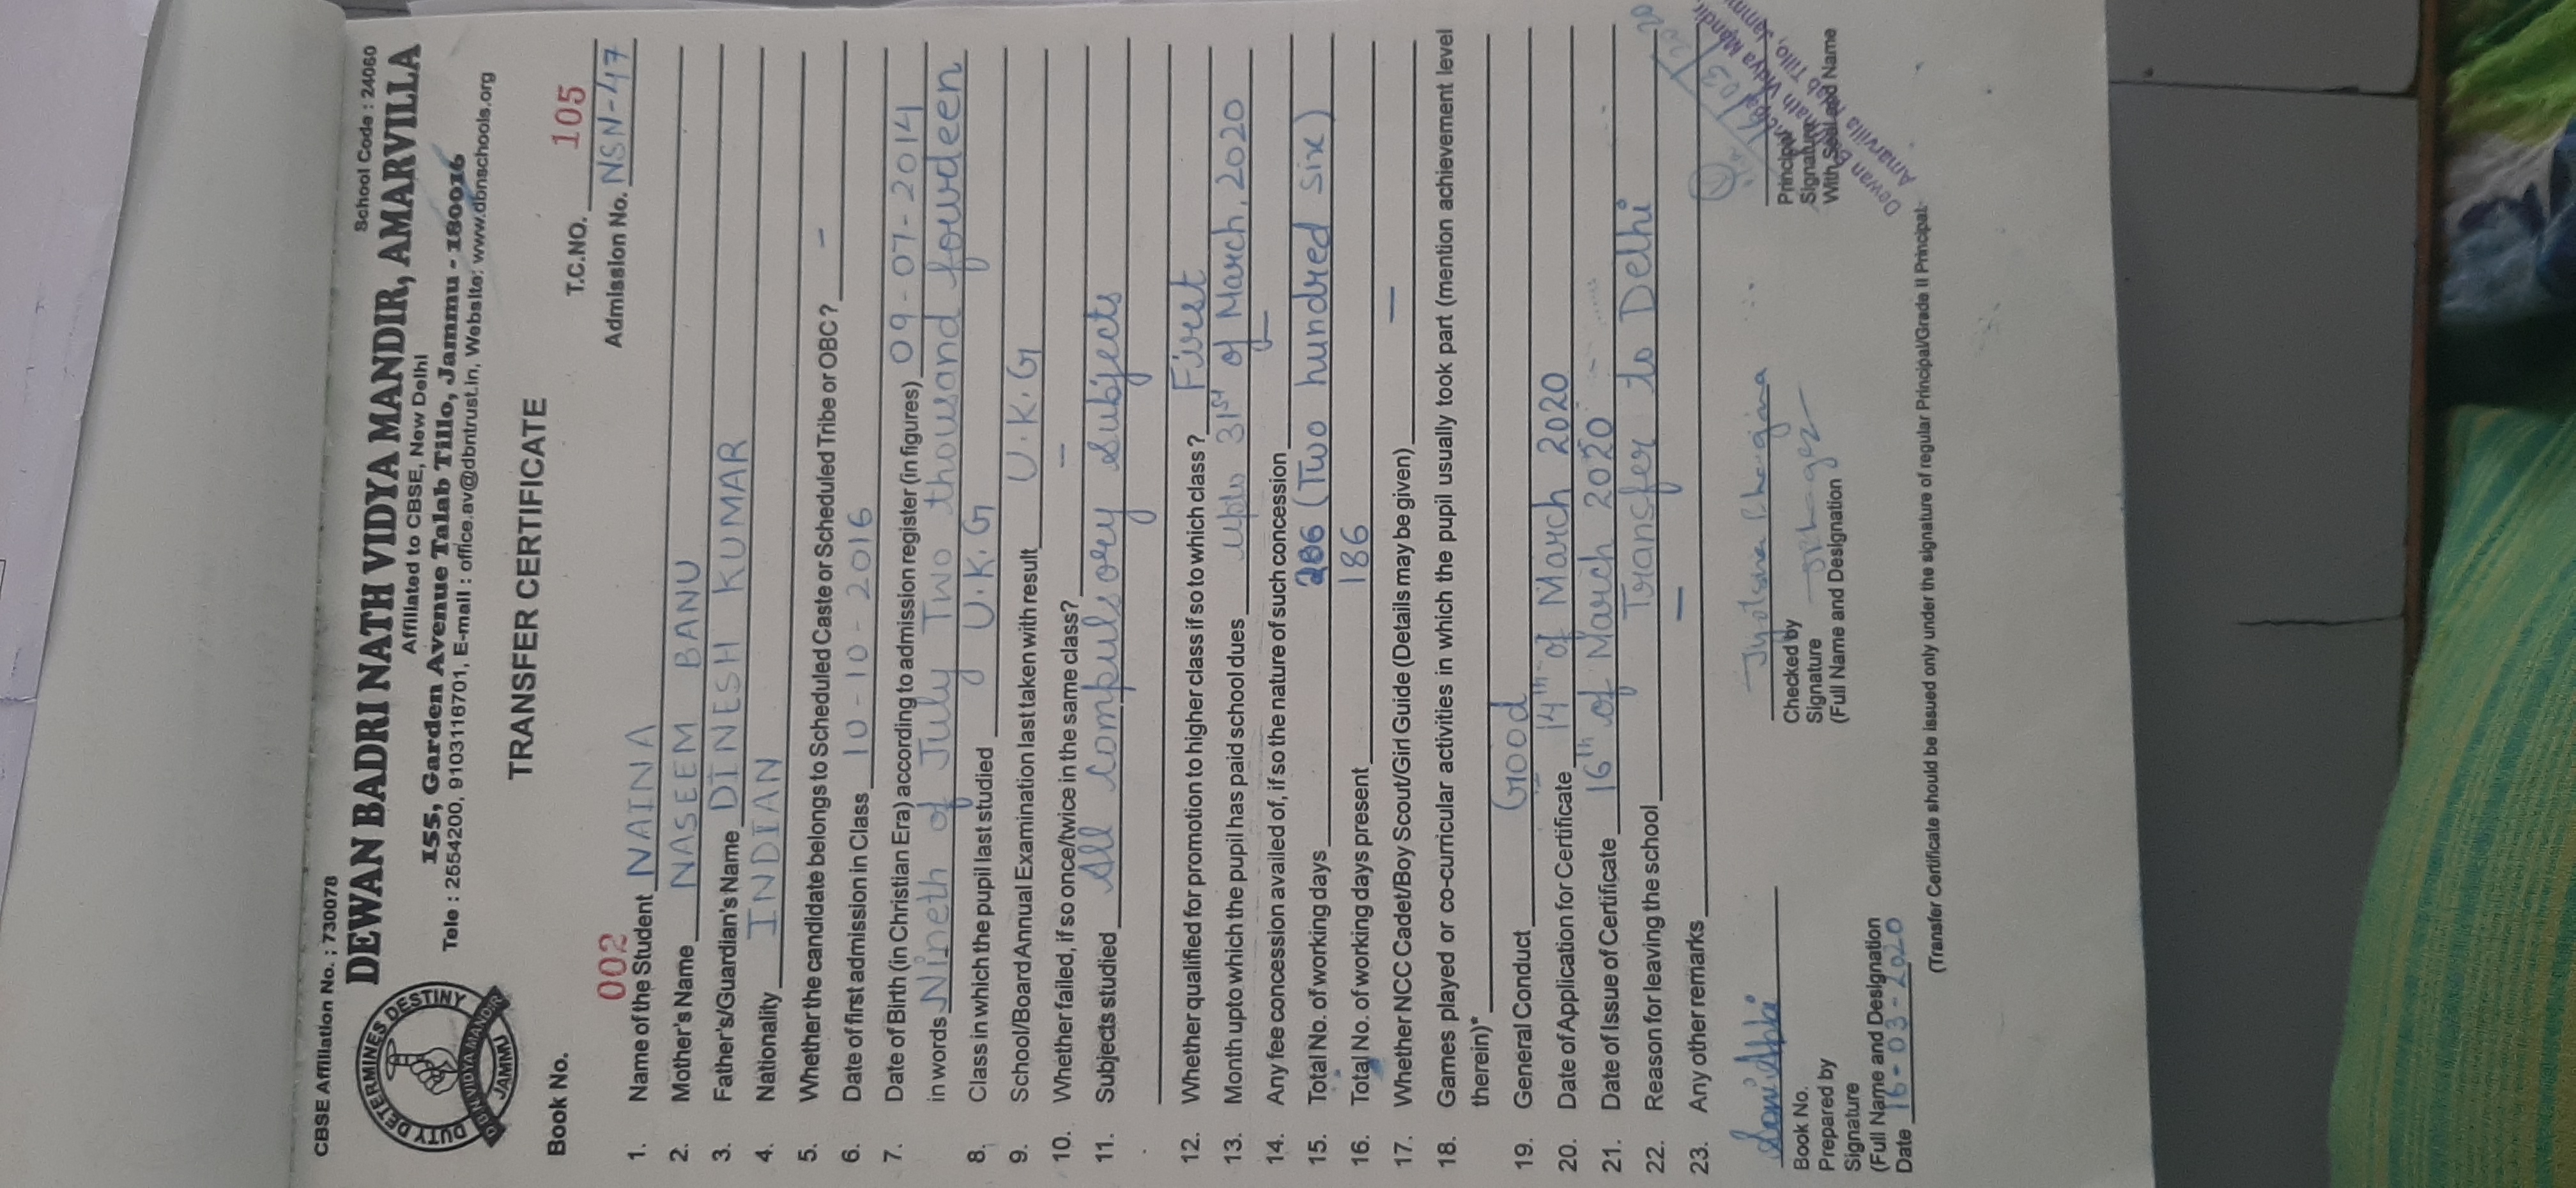 CBSE Affiliation No. : 730078 School Code : 24060
DEWAN BADRI NATH VIDYA MANDIR, AMARVILLA
Affiliated to CBSE, New Delhi
155, Garden Avenue Talab Tillo, Jammu - 180016
Tele : 2554200, 9103116701, E-mail : office.av@dbntrust.in, Website: www.dbnschools.org
DUTY DETERMINES DESTINY
D.B.N. VIDYA MANDIR
JAMMU
TRANSFER CERTIFICATE
Book No. 002 T.C.NO. 105
Admission No. NSN-47
1. Name of the Student NAINA
2. Mother's Name NASEEM BANU
3. Father's/Guardian's Name DINESH KUMAR
4. Nationality INDIAN
5. Whether the candidate belongs to Scheduled Caste or Scheduled Tribe or OBC? -
6. Date of first admission in Class 10-10-2016
7. Date of Birth (in Christian Era) according to admission register (in figures) 09-07-2014
in words Nineth of July Two thousand fourdeen
8. Class in which the pupil last studied U.K.G
9. School/Board Annual Examination last taken with result U.K.G
10. Whether failed, if so once/twice in the same class? -
11. Subjects studied All Compulsory Subjects
12. Whether qualified for promotion to higher class if so to which class? First
13. Month upto which the pupil has paid school dues upto 31st of March, 2020
14. Any fee concession availed of, if so the nature of such concession —
15. Total No. of working days 206 (Two hundred six)
16. Total No. of working days present 186
17. Whether NCC Cadet/Boy Scout/Girl Guide (Details may be given) —
18. Games played or co-curricular activities in which the pupil usually took part (mention achievement level
therein)*
19. General Conduct Good
20. Date of Application for Certificate 14th of March 2020
21. Date of Issue of Certificate 16th of March 2020
22. Reason for leaving the school Transfer to Delhi
23. Any other remarks —
Book No.
Prepared by
Signature
(Full Name and Designation
Date 16-03-2020
Checked by
Signature
(Full Name and Designation
Principal
Signature
With Seal and Name
Dewan Badrinath Vidya Mandir,
Amarvilla Talab Tillo, Jammu
(Transfer Certificate should be issued only under the signature of regular Principal/Grade II Principal